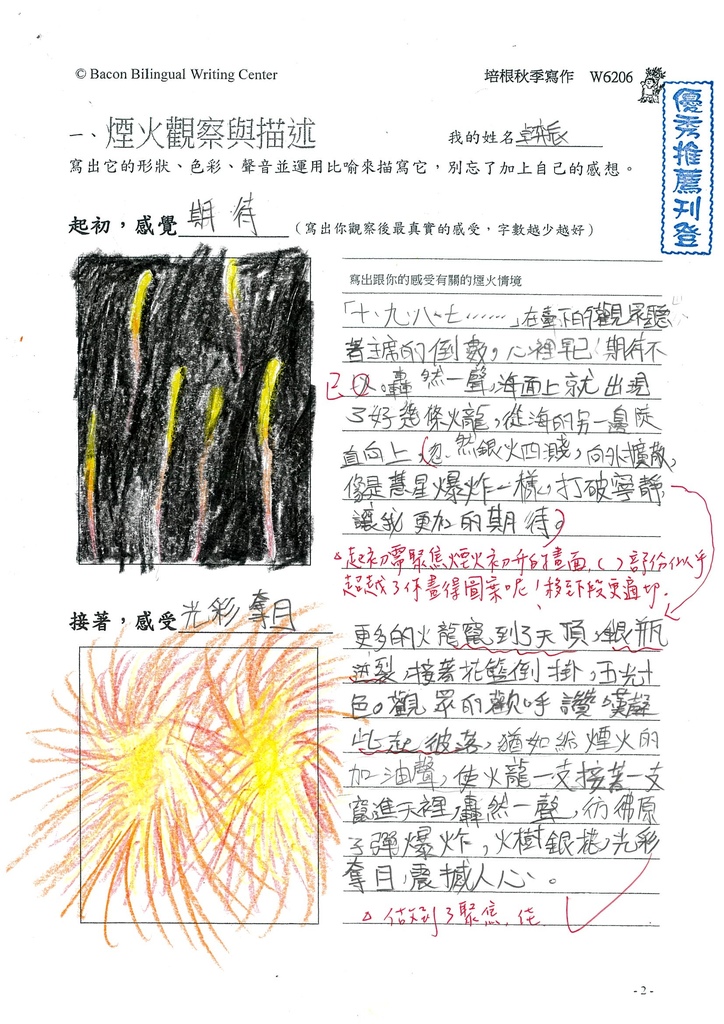 © Bacon Bilingual Writing Center
培根秋季寫作 W6206
優秀推薦刊登
一、煙火觀察與描述
我的姓名
寫出它的形狀、色彩、聲音並運用比喻來描寫它,別忘了加上自己的感想。
起初,感覺 期待 (寫出你觀察後最真實的感受,字數越少越好)
寫出跟你的感受有關的煙火情境
「十、九、八、七……」在臺下的觀眾聽
著主席的倒數,心裡早已期待不
已。轟然一聲,海面上就出現
了好幾條火龍,從海的另一邊陡
直向上(忽然銀火四濺,向外擴散,
像是慧星爆炸一樣,打破寧靜
讓我更加的期待。)
起初需聚焦煙火初升的畫面,( )部份似乎
超越了你畫得圖案呢!移到下段更適切.
接著,感受 光彩奪目
更多的火龍竄到了天頂,銀瓶
迸裂,接著花籃倒掛,五光十
色。觀眾的歡呼讚嘆聲
此起彼落,猶如給煙火的
加油聲,使火龍一支接著一支
竄進天裡,轟然一聲,彷彿原
子彈爆炸,火樹銀花,光彩
奪目,震撼人心。
做到了聚焦,佳
- 2 -